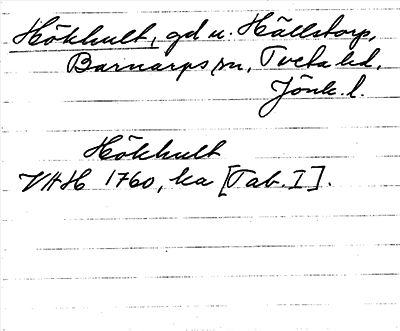 Hökhult, gd u. Hällstorp,
Barnarps sn, Tveta hd,
Jönk. l.
Hökhult
VAH 1760, ka [Tab. I].